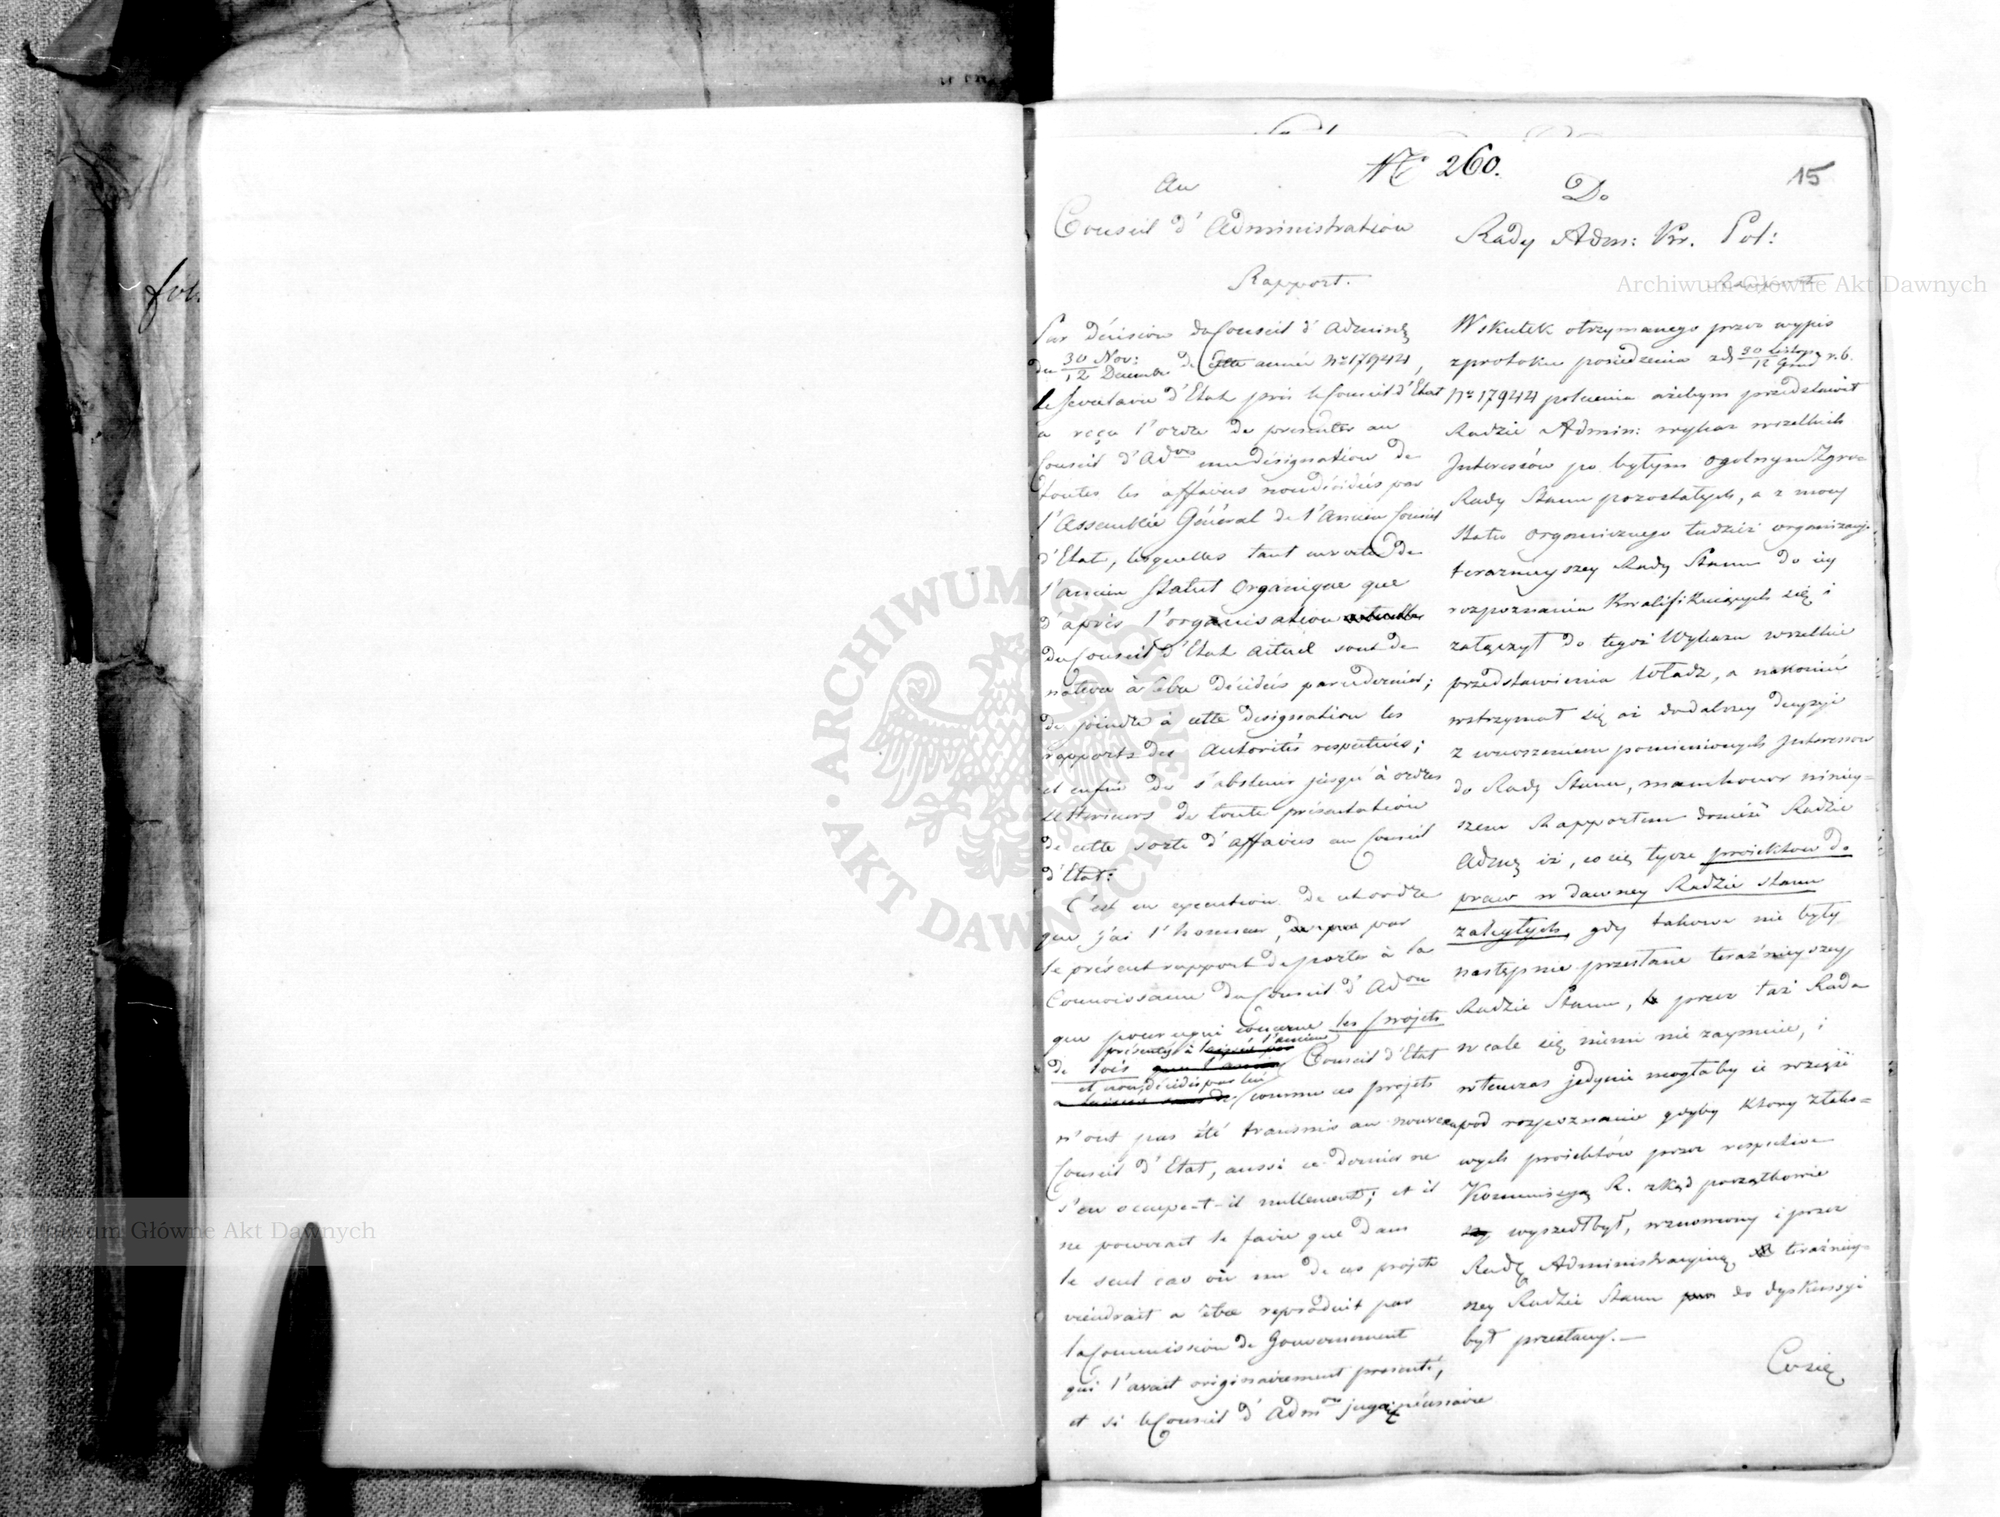 Nº 260.
15
Au
Conseil d'Administration
Rapport.
Par décision du Conseil d'Admin
du 30 Nov: / 12 Decembre de Cette année Nº 17944,
le Secretaire d'Etat près le Conseil d'Etat
a reçu l'ordre de presenter au
Conseil d'Adon une désignation de
toutes les affaires non décidées par
l'Assemblée Général de l'Ancien Conseil
d'Etat, lesquelles tant en vertu de
l'Ancien Statut Organique que
d'après l'organisation actuelle
du Conseil d'Etat Actuel sont de
nature à être décidées par ce dernier;
de joindre à cette designation les
rapports des Autorités respectives;
et enfin de s'abstenir jusqu'à ordres
ulterieurs de toute présentation
de cette sorte d'affaires au Conseil
d'Etat:
C'est en execution de cet ordre
que j'ai l'honneur, par
le présent rapport de porter à la
Connoissance du Conseil d'Adon
que pour ce qui concerne les projets
présentés à l'ancien
de lois Conseil d'Etat
et non décidés par lui
comme ces projets
n'ont pas été transmis au nouveau
Conseil d'Etat, aussi ce dernier ne
s'en occupe-t-il nullement; et il
ne pourrait le faire que dans
le seul cas où un de ces projets
viendrait a être reproduit par
la Commission de Gouvernement
qui l'avait originairement presenté,
et si le Conseil d'Admon jugeait nécessaire
Do
Rady Adm: Kr. Pol:
Raport
W skutek otrzymanego przez wypis
z protokułu posiedzenia z d 30 Listop / 12 Grud r. b.
Nº 17944 polecenia ażebym przedstawił
Radzie Admin: wykaz wszelkich
Interessów po byłym ogolnym Zgro=
Rady Stanu pozostałych, a z mocy
Statu Organicznego tudzież organizacyi
terazniejszey Rady Stanu do iey
rozpoznania kwalifikuiących się i
załączył do tegoż Wykazu wszelkie
przedstawienia Władz, a nakoniec
wstrzymał się aż do dalszey decyzyi
z wnoszeniem pomienionych Interessow
do Rady Stanu, mam honor niniey=
szem Rapportem donieść Radzie
Adm iż, co się tycze proiektow do
praw w dawney Radzie Stanu
zaległych, gdy takowe nie były
następnie przesłane teraźnieyszey
Radzie Stanu, przez taż Rada
wcale się niemi nie zaymuie, i
wtenczas jedynie mogłaby ie wziąść
pod rozpoznanie gdyby który z tako=
wych proiektów przez respective
Kommissyą R. zkąd początkowie
wyszedł był, wznowiony i przez
Radę Administracyiną teraźniey=
szey Radzie Stanu do dyskussyi
był przesłany. —
Co się
fol.
Archiwum Główne Akt Dawnych
Archiwum Główne Akt Dawnych
ARCHIWUM GŁÓWNE · AKT DAWNYCH ·